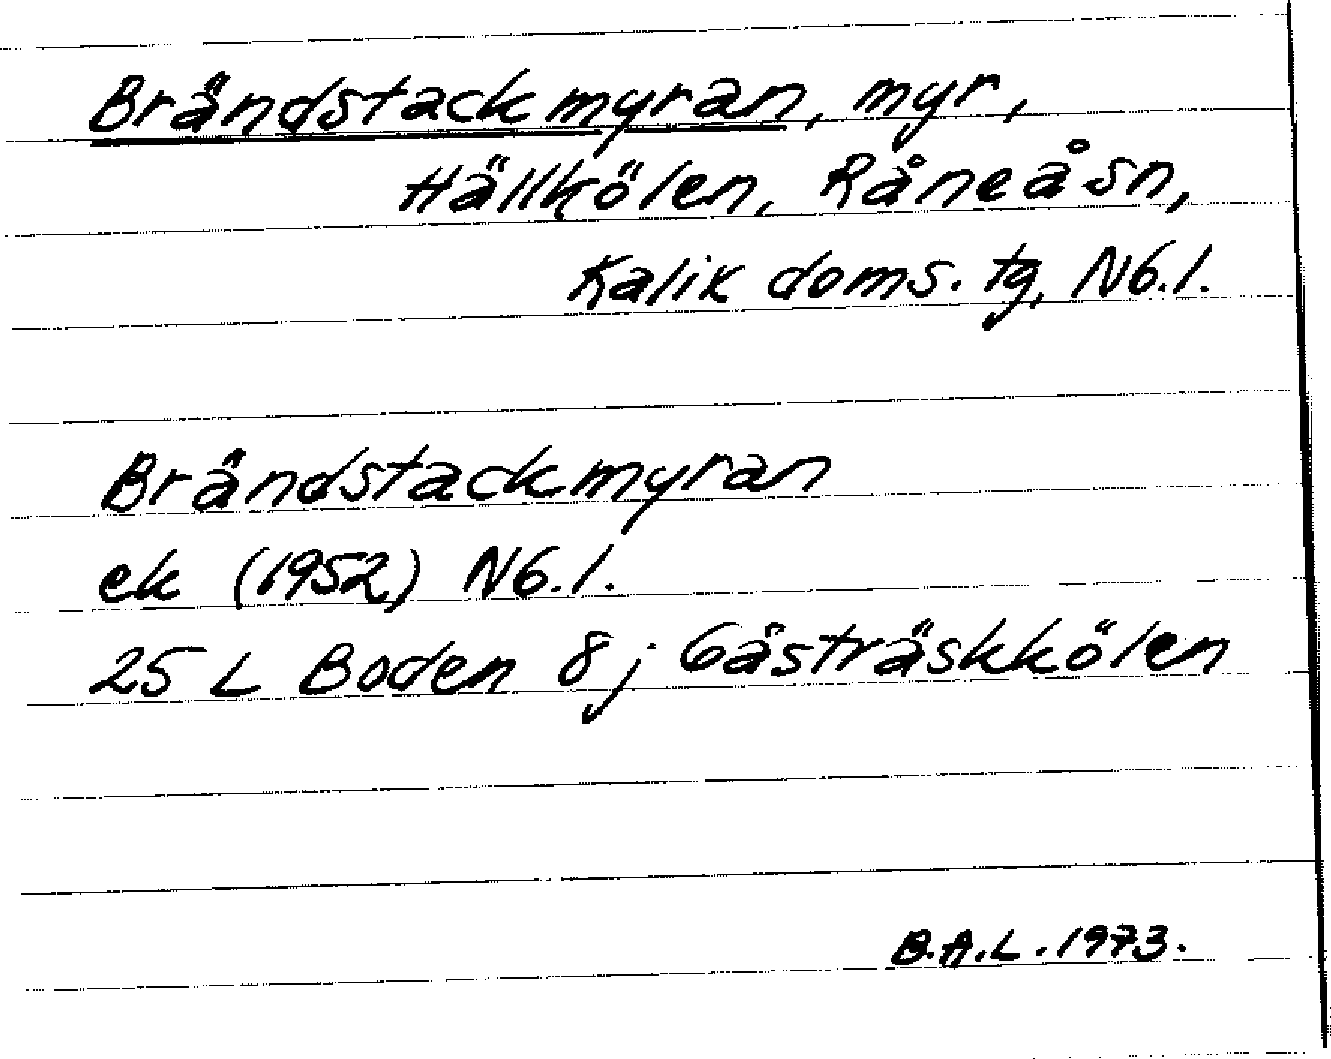 Brändstackmyran, myr,
Hällkölen, Råneå sn,
Kalix doms. tg, Nb. l.
Brändstackmyran
ek (1952) Nb. l.
25 L Boden 8 j Gästräskkölen
B.A.L. 1973.